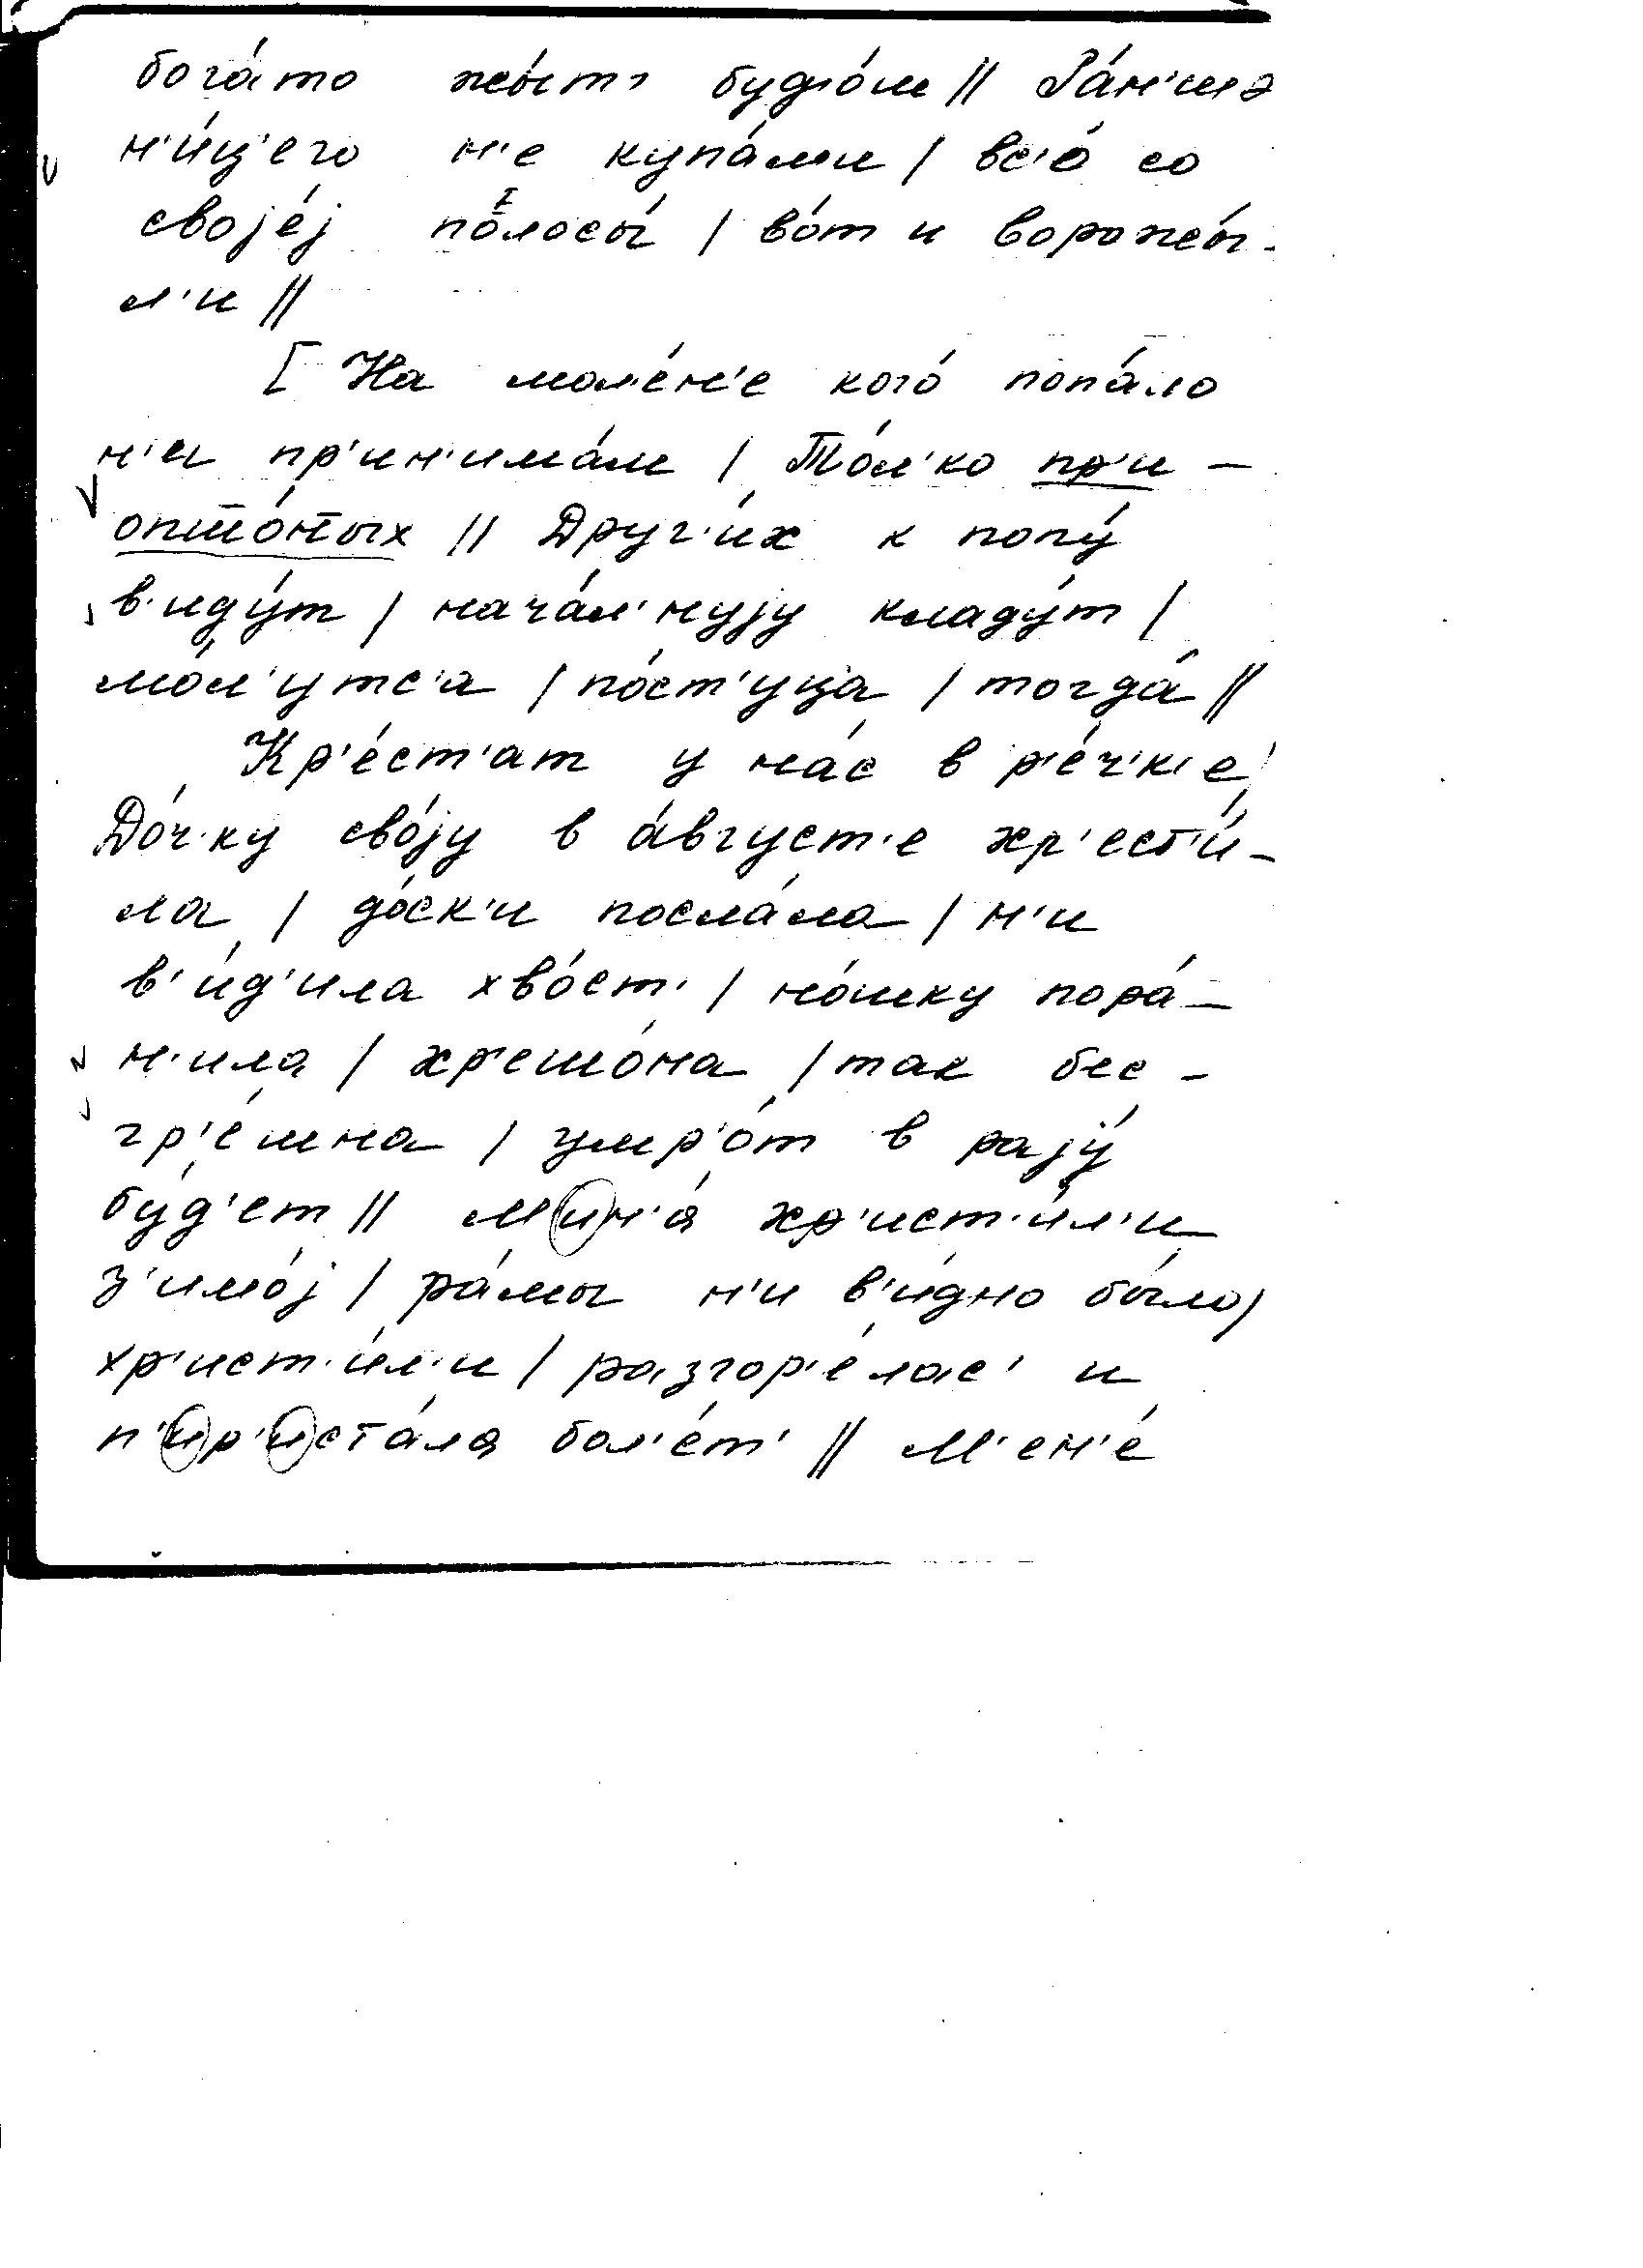 бога́то жы́т' будо́м || Ра́н'шэ
н'и́ц'его н'е купа́ли | вс'о́ со
својéј по́лосы́ | во́т иворожы́-
л'и ||
[ На мол'е́н'е кого́ попа́ло
н'и пр'ин'има́ли | То́л'ко пр'и-
опшо́ных || Друг'и́х к попу́
в'иду́т | нача́л'нују кладу́т |
мо́л'утс'а | по́ст'уца | тогда́ ||
Кр'е́ст'ат у на́с в р'е́ч'к'е |
До́ч'ку сво́ју в а́вгуст'е хр'ест'и́-
ла | до́ск'и посла́ла | н'и
в'и́д'ила хво́ст' | но́шку пора́-
н'ила | хр'ешо́на | так бес-
гр'е́шна | умр'о́т в рају́
бу́д'ет || мин'а́ хр'ист'и́л'и
з'имо́ј | ра́мы н'и в'и́дно бы́ло |
хр'ист'и́л'и | разгор'е́лас' и
п'ир'иста́ла бол'е́т' || М'ен'е́